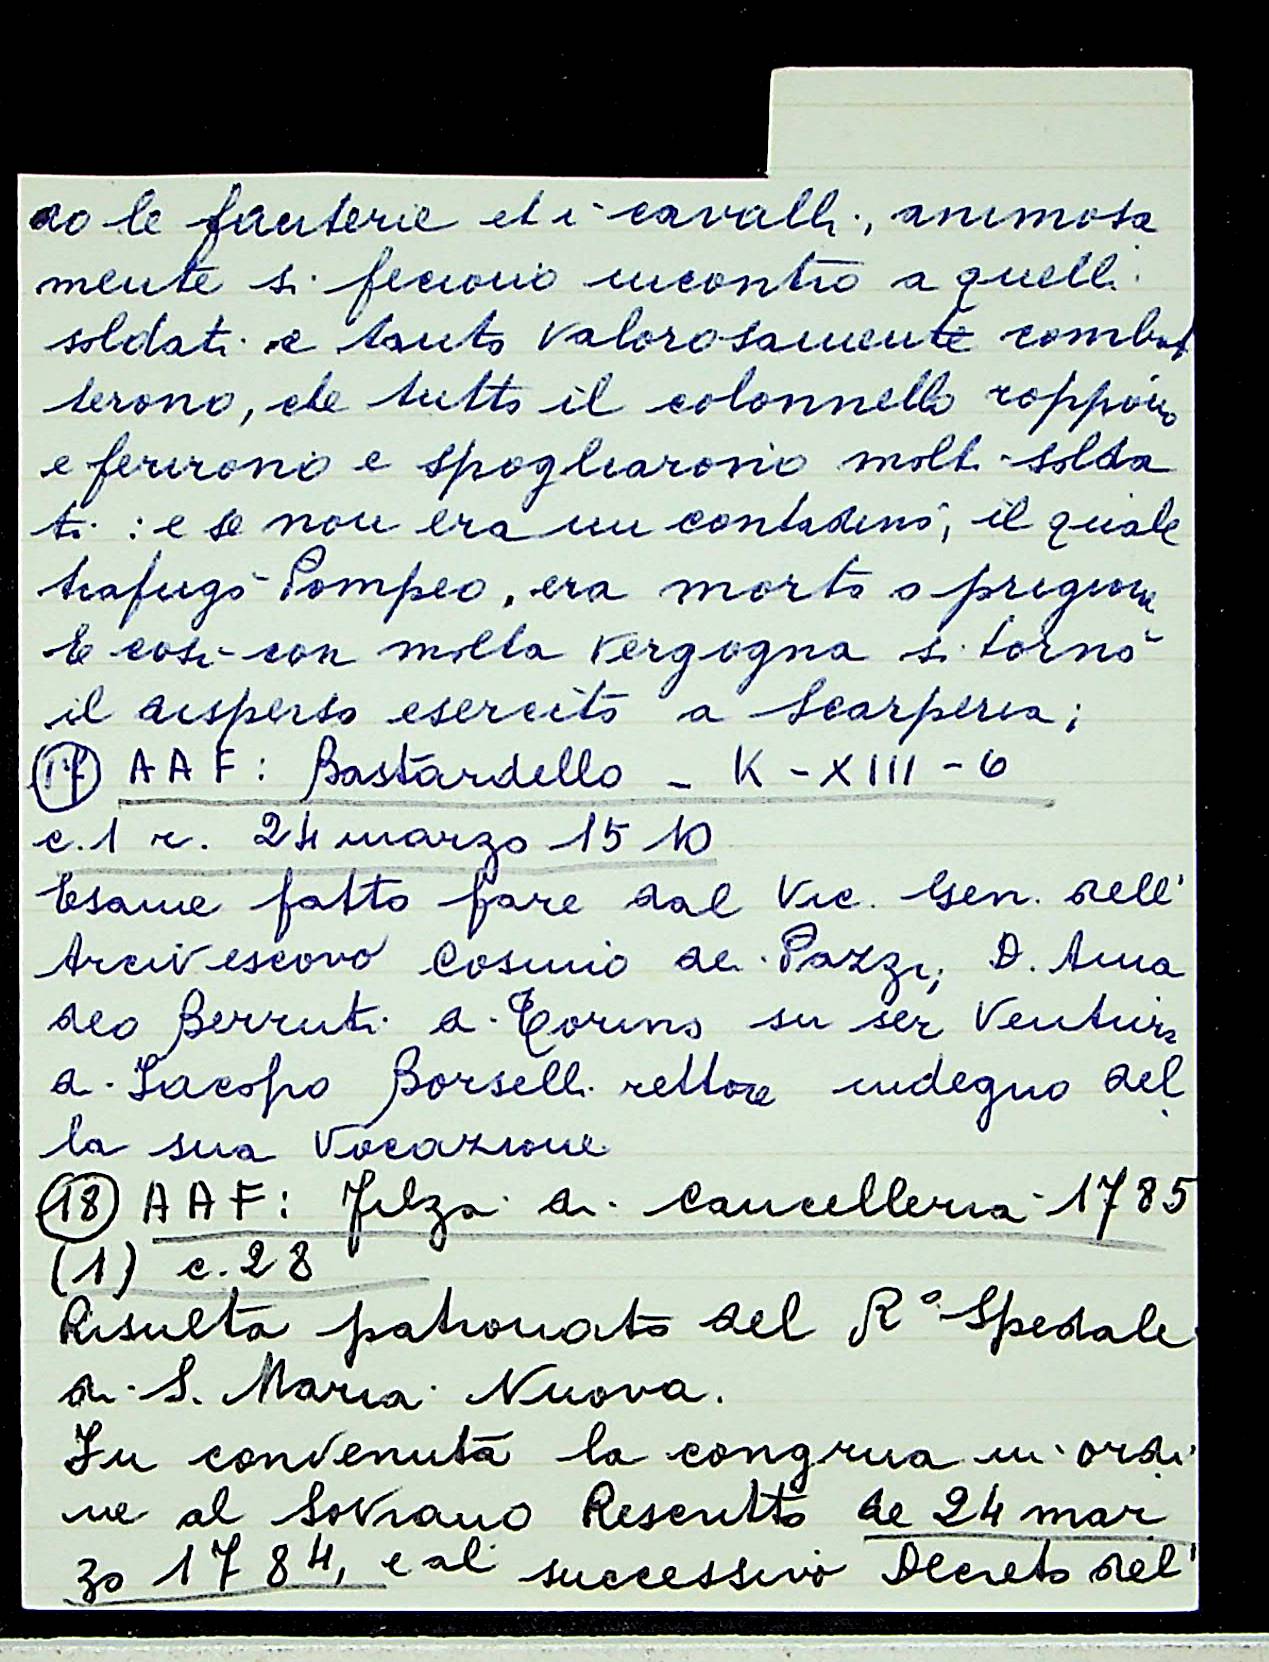 do le fanterie et i cavalli, animosa
mente si feciono incontro a quelli
soldati e tanto valorosamente combat
terono, che tutto il colonnello roppono
e ferirono e spogliarono molti solda
ti : e se non era un contadino, il quale
trafugò Pompeo, era morto o prigione
E così con molta vergogna si tornò
il disperso esercito a Scarperia;
(17) AAF: Bastardello - K - XIII - 6
c. 1 r. 24 marzo 1510
Esame fatto fare dal Vic. Gen. dell'
Arcivescovo Cosimo de' Pazzi, D. Ama
deo Berruti di Torino su ser Ventura
di Iacopo Borselli rettore indegno del
la sua vocazione
(18) AAF: Filza di Cancelleria 1785
(1) c. 28
Risulta patronato del R° Spedale
di S. Maria Nuova.
Fu convenuta la congrua in ordi
ne al Sovrano Rescritto de 24 mar
zo 1784, e al successivo Decreto dell'